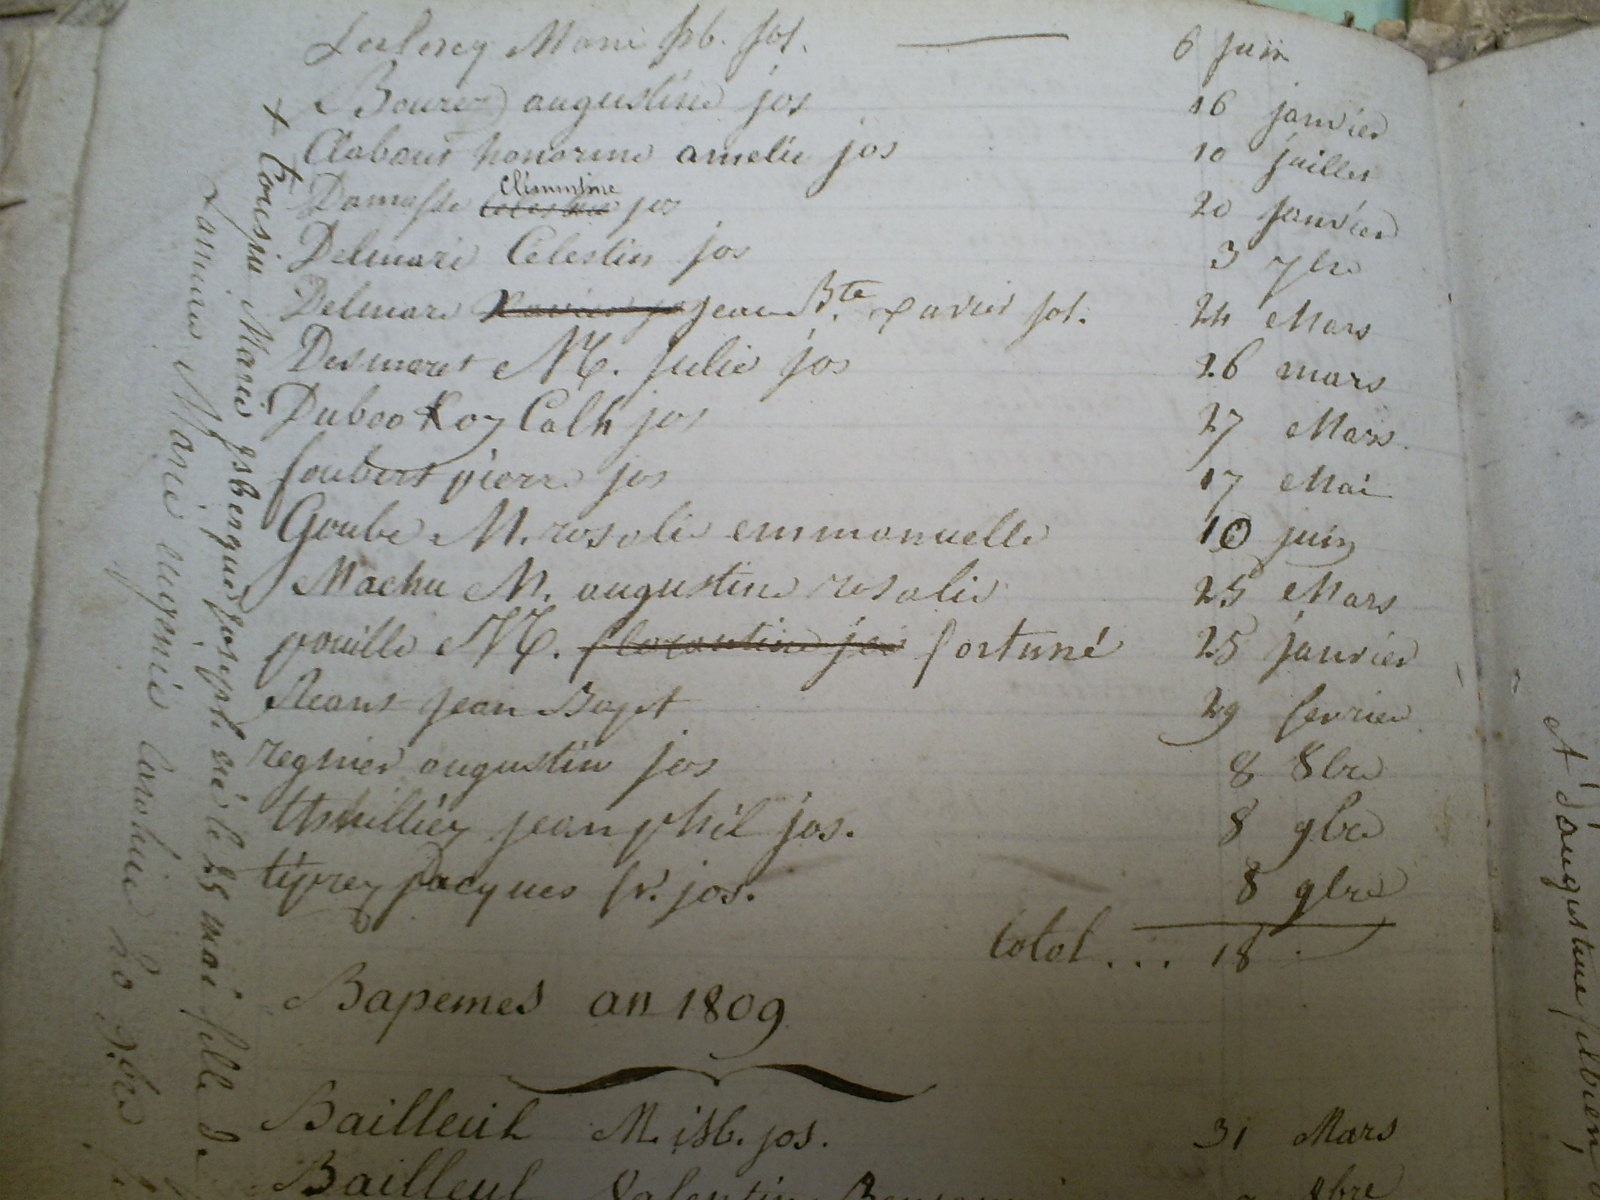 Leclercq Marie isb. jos. 6 juin
augustine jos 16 janvier
Clabaut honorine amelie jos 10 juillet
Damasse Clémentine jos 20 janvier
Delmare Celestin jos 3 7bre
Delmare jean Bte. xavier jos. 24 Mars
Desmaret M. Julie jos 26 mars
Cath jos 27 Mars
foubert pierre jos 17 Mai
Goube M. rosalie emmanuelle 10 juin
Machu M. augustine rosalie 25 Mars
pouille M. florentine jos fortuné 25 janvier
jean Bapt 29 fevrier
regnier augustin jos 8 8bre
jean phil jos. 8 9bre
tiprez jacques fr. jos. 8 9bre
total ... 18
Bapemes an 1809
Bailleul M. isb. jos. 31 Mars
Bailleul Valentin 8bre
+ Cousin Marie isbergue joseph née le 25 mai fille d.
Marie eugenie Caroline 20
A d'augustine